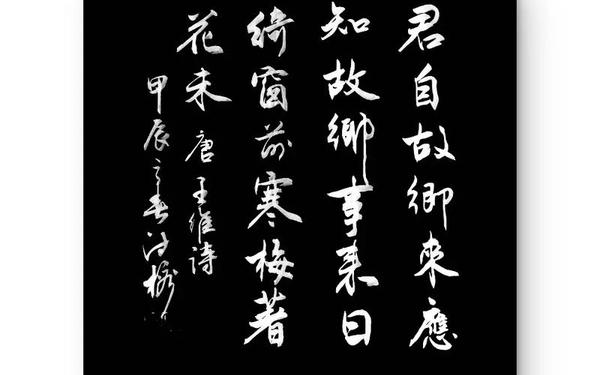 君自故鄉來應
知故鄉事來日
綺窗前寒梅著
花未 唐 王維詩
甲辰之春